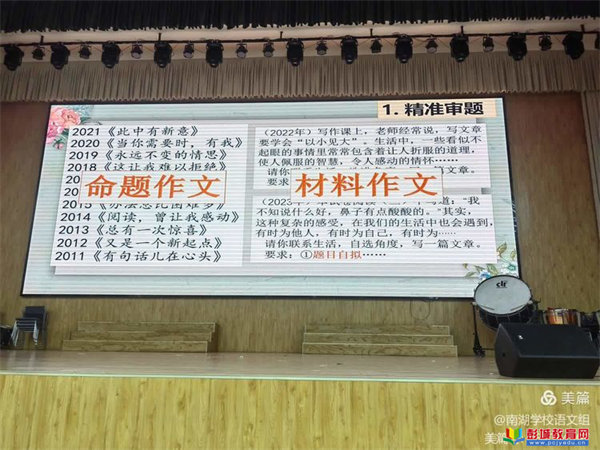 1. 精准审题
2021《此中有新意》
2020《当你需要时，有我》
2019《永远不变的情思》
2018《这让我难以拒绝》
命题作文
2015《办法总比困难多》
2014《阅读，曾让我感动》
2013《总有一次惊喜》
2012《又是一个新起点》
2011《有句话儿在心头》
（2022年）写作课上，老师经常说，写文章
要学会“以小见大”。生活中，一些看似不
起眼的事情里常常包含着让人折服的道理，
使人佩服的智慧，令人感动的情怀……
材料作文
要求
（2023年）
不知说什么好，鼻子有点酸酸的。"其实，
这种复杂的感受，在我们的生活中也会遇到，
有时为他人，有时为自己，有时为……
请你联系生活，自选角度，写一篇文章。
要求：①题目自拟……
美篇
@南湖学校语文组
美篇
彭城教育网
www.pcjyedu.cn